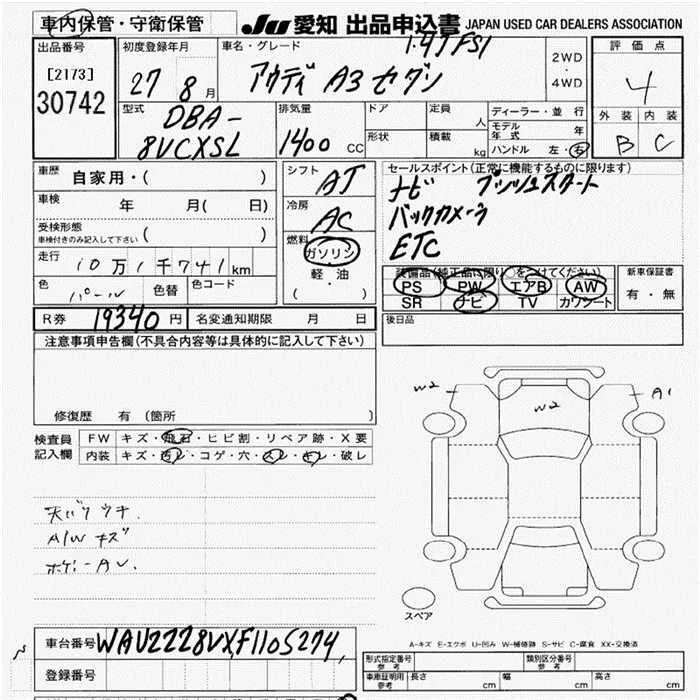 車内保管・守衛保管
JU 愛知 出品申込書 JAPAN USED CAR DEALERS ASSOCIATION
出品番号 初度登録年月 車名・グレード 1.4T FSI 2WD ・ 4WD 評価点
[2173]
30742 27 8月 アウディ A3 セダン 4
型式 排気量 ドア 定員 人 ディーラー・並行 外装 内装
DBA-
8VCXSL 1400 CC 形状 積載 kg モデル年式 年 B C
ハンドル 左・右
車歴 自家用・( ) シフト AT セールスポイント(正常に機能するものに限ります)
車検 年 月( 日) 冷房 AC ナビ プッシュスタート
受検形態 ( ) バックカメラ
車検付きのみ記入して下さい 燃料 ガソリン ETC
走行 10万1千741km 軽・油
装備品(純正品に限り○をつけてください) 新車保証書
色 パール 色替 色コード ( ) PS PW エアB AW 有・無
SR ナビ TV カワシート
R券 19340円 名変通知期限 月 日 後日品
注意事項申告欄(不具合内容等は具体的に記入して下さい)
修復歴 有 (箇所 )
W2 W2 A1
検査員 FW キズ・飛石・ヒビ割・リペア跡・X要
記入欄 内装 キズ・汚レ・コゲ・穴・スレ・キレ・破レ
天バリ ウチ.
A/W キズ
ボデーAU.
スペア
A-キズ E-エクボ U-凹み W-補修跡 S-サビ C-腐食 XX-交換済
車台番号 WAUZZZ8VXF1105274
型式指定番号 参考 類別区分番号 参考
登録番号 車庫証明用 参考 長さ cm 幅 cm 高さ cm